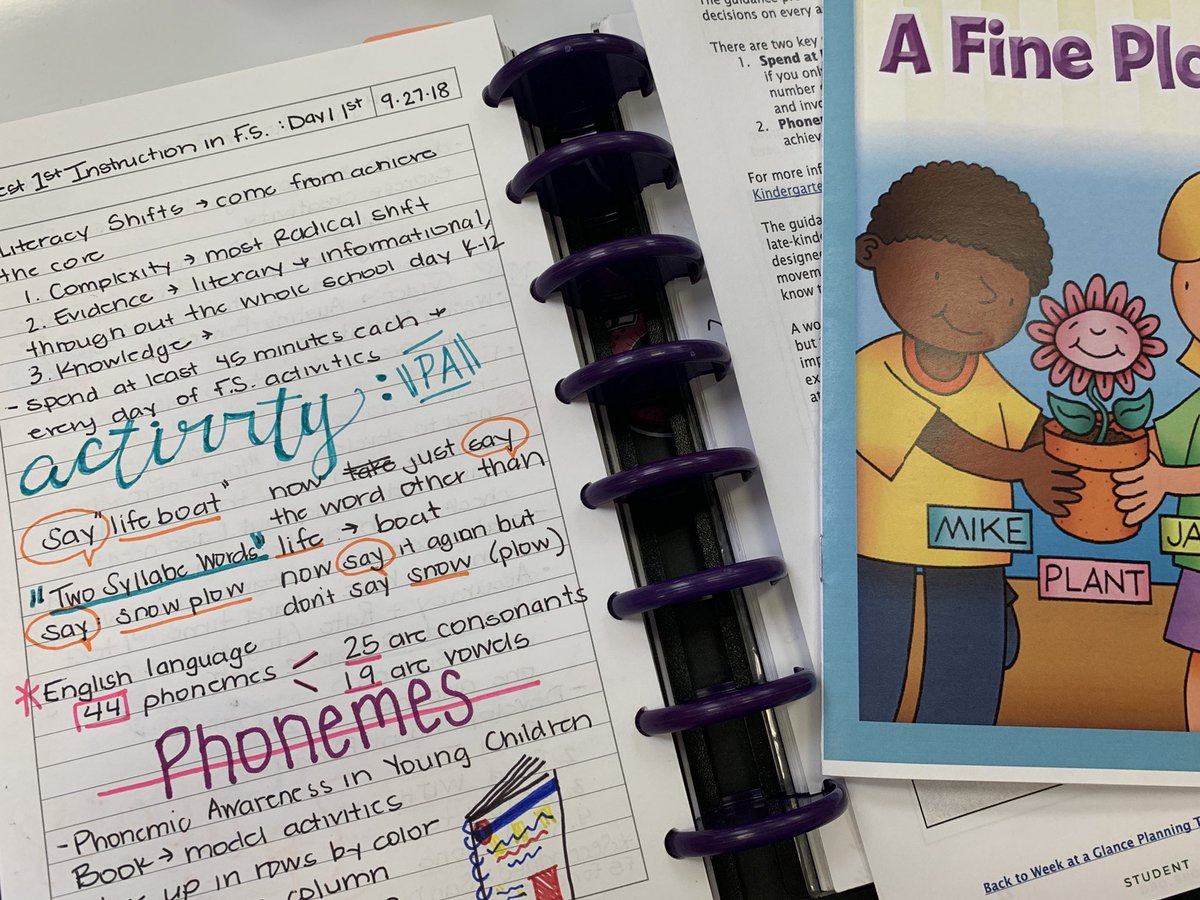 1st Instruction in F.S. : Day 1 1st
9.27.18
Literacy Shifts → come from achieve
the core
1. Complexity → most Radical shift
2. Evidence → literary + informational,
through out the whole school day K-12
3. Knowledge →
- spend at least 45 minutes each +
every day of F.S. activities
activity : "PA"
say "life boat" now take just say
the word other than
"Two Syllabc Words" life → boat
say: snow plow now say it agian but
don't say snow (plow)
*English language
44 phonemes < 25 are consonants
19 are vowels
Phonemes
- Phonemic Awareness in Young Children
Book → model activities
up in rows by color
column
decisions on every a
There are two key
1. Spend at
if you onl
number
and invo
2. Phone
achiev
For more inf
Kindergarte
The guida
late-kind
designe
movem
know t
A wo
but
imp
ex
A Fine Pla
MIKE
JA
PLANT
Back to Week at a Glance Planning T
STUDENT